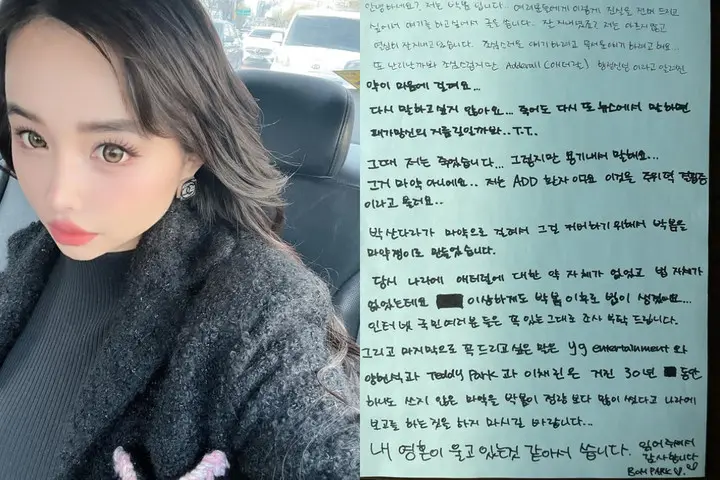 안녕하세요? 저는 박봄 입니다... 여러분들에게 이렇게 진실을 전해 드리고
싶어서 얘기를 하고 싶어서 글을 씁니다... 잘 지내셨죠? 저는 아프지 않고
열심히 잘지내고 있습니다. 조심스러운 얘기 하려고
또 난리난까봐 조심스럽지만 Adderall (애더럴)
약이 마음에 걸려요...
다시 말하고싶지 않아요... 죽어도 다시 또 뉴스에서 말하면
패가망신의 지름길일까봐.. T.T.
그때 저는 죽었습니다... 그렇지만 용기내서 말해요...
그거 마약 아니에요.. 저는 ADD 환자 이고요 이것을 주위력 결핍증
이라고 불러요..
박산다라가 마약으로 걸려서 그걸 커버하기 위해서 박봄을
마약쟁이로 만들었습니다.
당시 나라에 애더럴에 대한 약 자체가 없었고 법 자체가
없었는데요 이상하게도 박봄 이후로 법이 생겼어요...
인터넷 국민여러분 들은 꼭 있는그대로 조사 부탁 드립니다.
그리고 마지막으로 꼭 드리고 싶은 말은 yg entertainment 와
양현석과 Teddy Park 과 이채린은 거진 30년 동안
하나도 쓰지 않은 마약을 박봄이 정량 보다 많이 썼다고 나라에
보고를 하는것을 하지 마시길 바랍니다...
내 영혼이 울고 있는것 같아서 씁니다. 읽어주셔서
감사합니다
BOM PARK